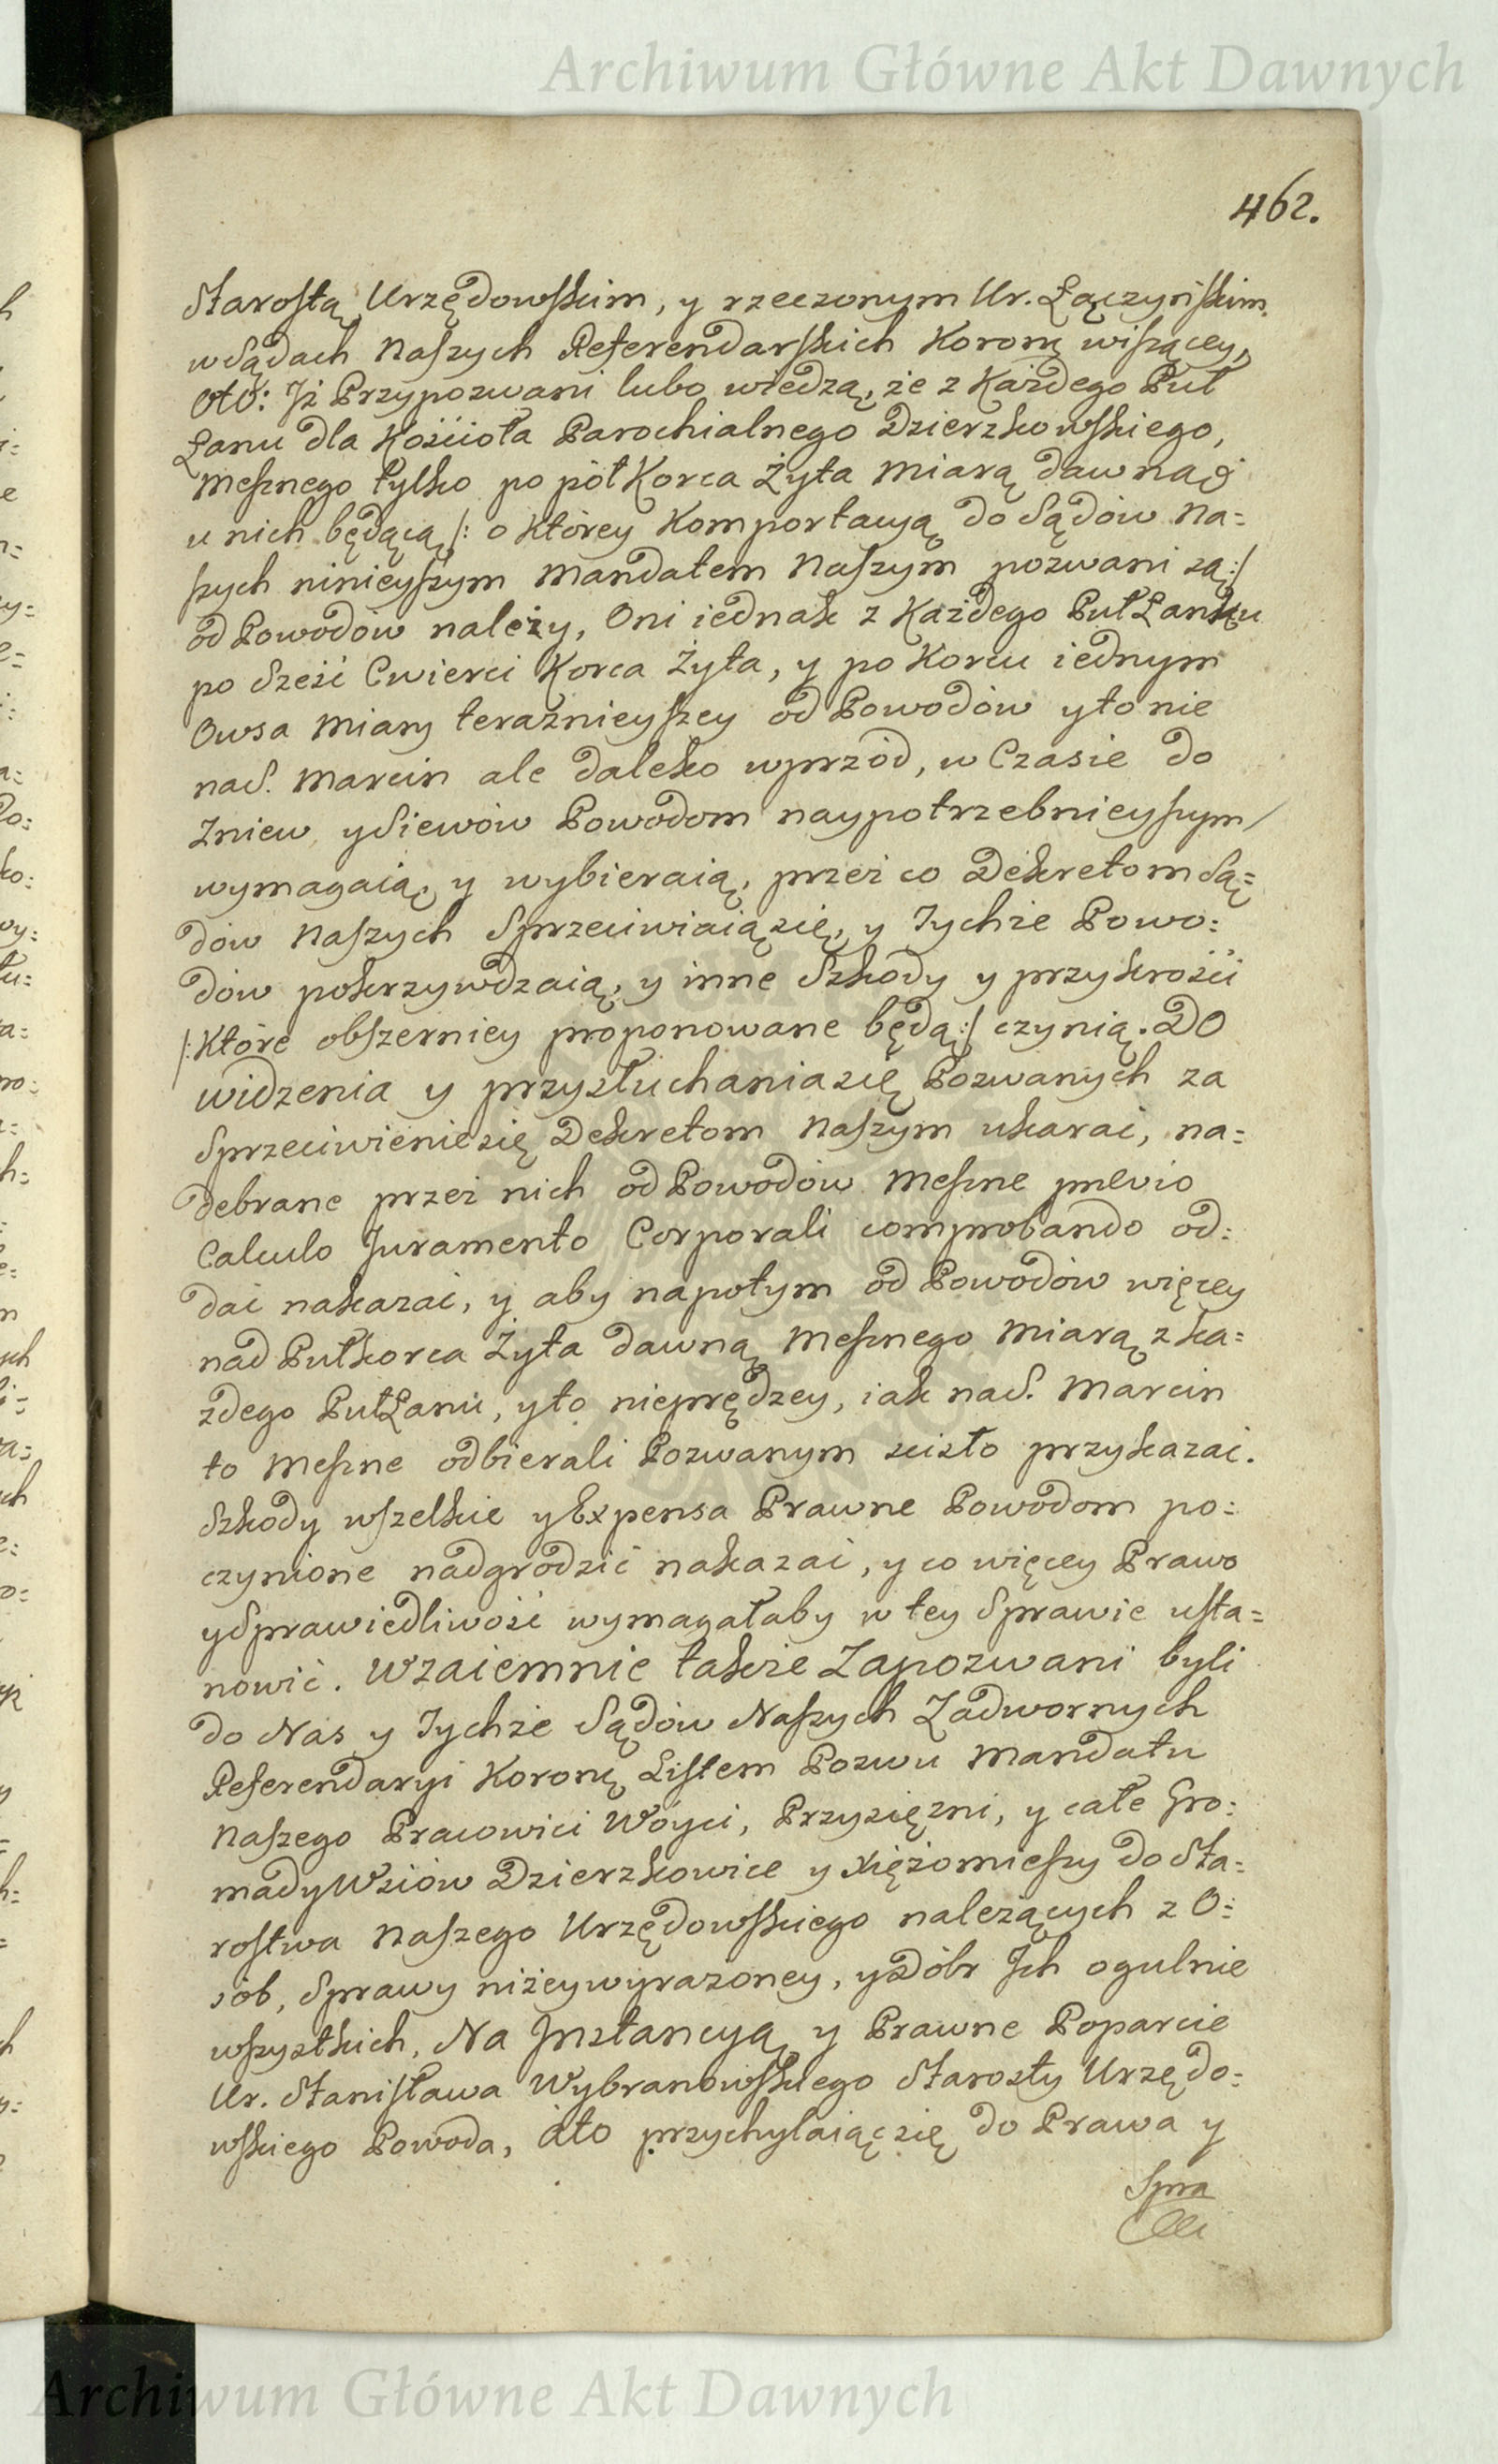 Archiwum Główne Akt Dawnych
462.
Starostą Urzędowskim, y rzeczonym Ur. Łączyńskim
w Sądach Naszych Referendarskich Koronę wiszącey,
Oto: Iż Przypozwani lubo wiedzą, że z Każdego Puł
Łanu dla Kościoła Parochialnego Dzierzkowskiego,
Mesznego tylko po pół Korca Żyta Miarą dawną
u nich będącą /: o którey Komportacyą do Sądów Na=
szych ninieyszym Mandatem Naszym pozwani są :/
od Powodów należy, Oni iednak z Każdego PułŁanku
po Sześć Cwierci Korca Żyta, y po Korcu iednym
Owsa Miary teraznieyszey od Powodów y to nie
na S. Marcin ale daleko wprzód, w Czasie do
Zniew y Siewów Powodom naypotrzebnieyszym
wymagaią, y wybieraią, przez co Dekretom Są=
dów Naszych Sprzeciwiaią się, y Tychże Powo:
dów pokrzywdzaią, y inne Szkody y przykrości
/: Które obszerniey proponowane będą :/ czynią. Do
widzenia y przysłuchania się Pozwanych za
Sprzeciwienie się Dekretom Naszym ukarać, na=
debrane przez nich od Powodów Meszne prævio
Calculo Juramento Corporali comprobando od:
dać nakazać, y aby napotym od Powodów więcey
nad Pułkorca Żyta dawną Mesznego Miarą z ka=
żdego PułŁanu, y to nieprędzey, iak na S. Marcin
to Meszne odbierali Pozwanym scisło przykazać.
Szkody wszelkie y Expensa Prawne Powodom po:
czynione nadgrodzić nakazać, y co więcey Prawo
y Sprawiedliwość wymagałaby w tey Sprawie usta=
nowić. Wzaiemnie także Zapozwani byli
do Nas y Tychże Sądów Naszych Zadwornych
Referendaryi Koronę Listem Pozwu Mandatu
Naszego Pracowici Woyci, Przysiężni, y całe Gro:
mady Wsiów Dzierzkowice y Xiężomieszy do Sta:
rostwa Naszego Urzędowskiego należących z O:
sób, Sprawy niżey wyrażoney, y z Dóbr Ich ogulnie
wszystkich, Na Instancyą y Prawne Poparcie
Ur. Stanisława Wybranowskiego Starosty Urzędo:
wskiego Powoda, Ato przychylaiąc się do Prawa y
Spra
Archiwum Główne Akt Dawnych